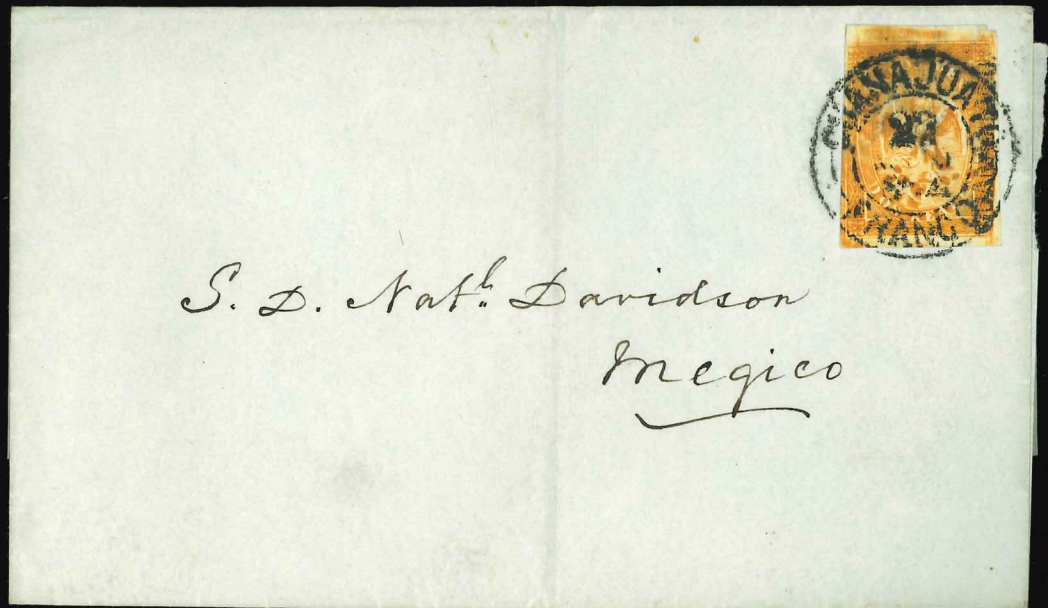 GUANAJUATO
S. D. Nath. Davidson
Megico